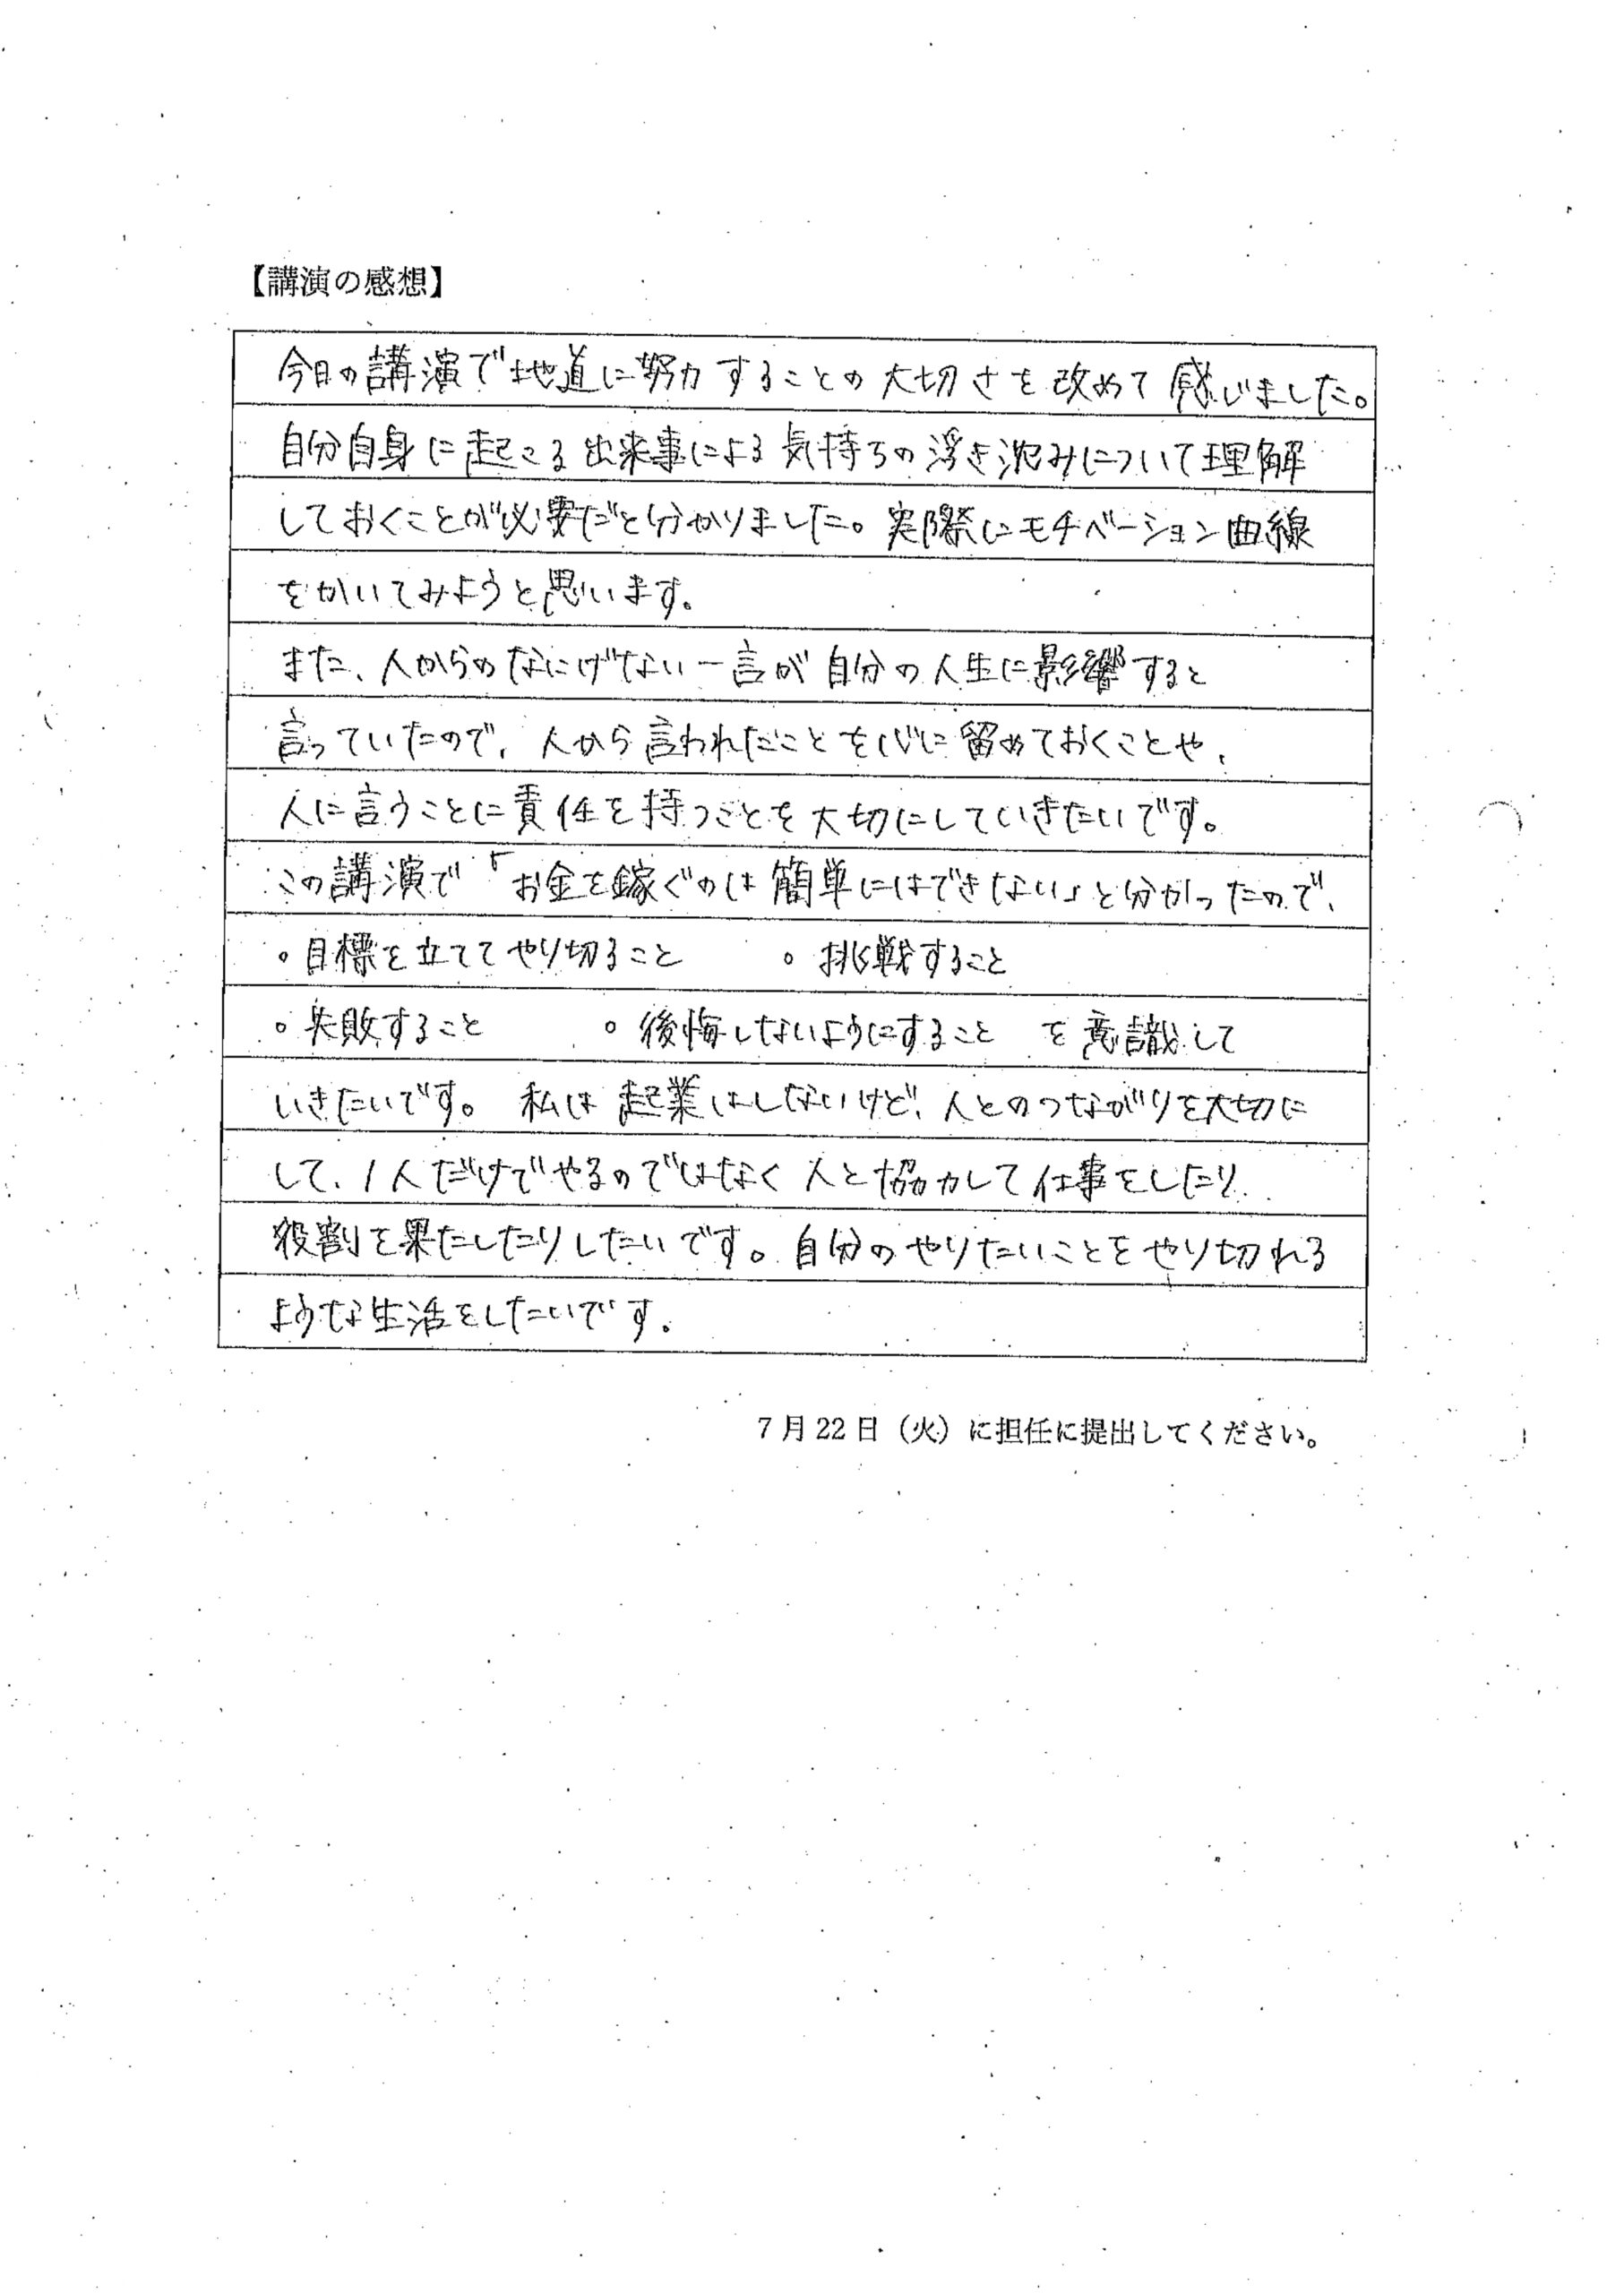 【講演の感想】
今日の講演で地道に努力することの大切さを改めて感じました。
自分自身に起こる出来事による気持ちの浮き沈みについて理解
しておくことが必要だと分かりました。実際にモチベーション曲線
をかいてみようと思います。
また、人からのなにげない一言が自分の人生に影響すると
言っていたので、人から言われたことを心に留めておくことや、
人に言うことに責任を持つことを大切にしていきたいです。
この講演で「お金を稼ぐのは簡単にはできない」と分かったので、
。目標を立ててやり切ること 。挑戦すること
。失敗すること 。後悔しないようにすること を意識して
いきたいです。私は起業はしないけど、人とのつながりを大切に
して、1人だけでやるのではなく人と協力して仕事をしたり、
役割を果たしたりしたいです。自分のやりたいことをやり切れる
ような生活をしたいです。
7月22日（火）に担任に提出してください。